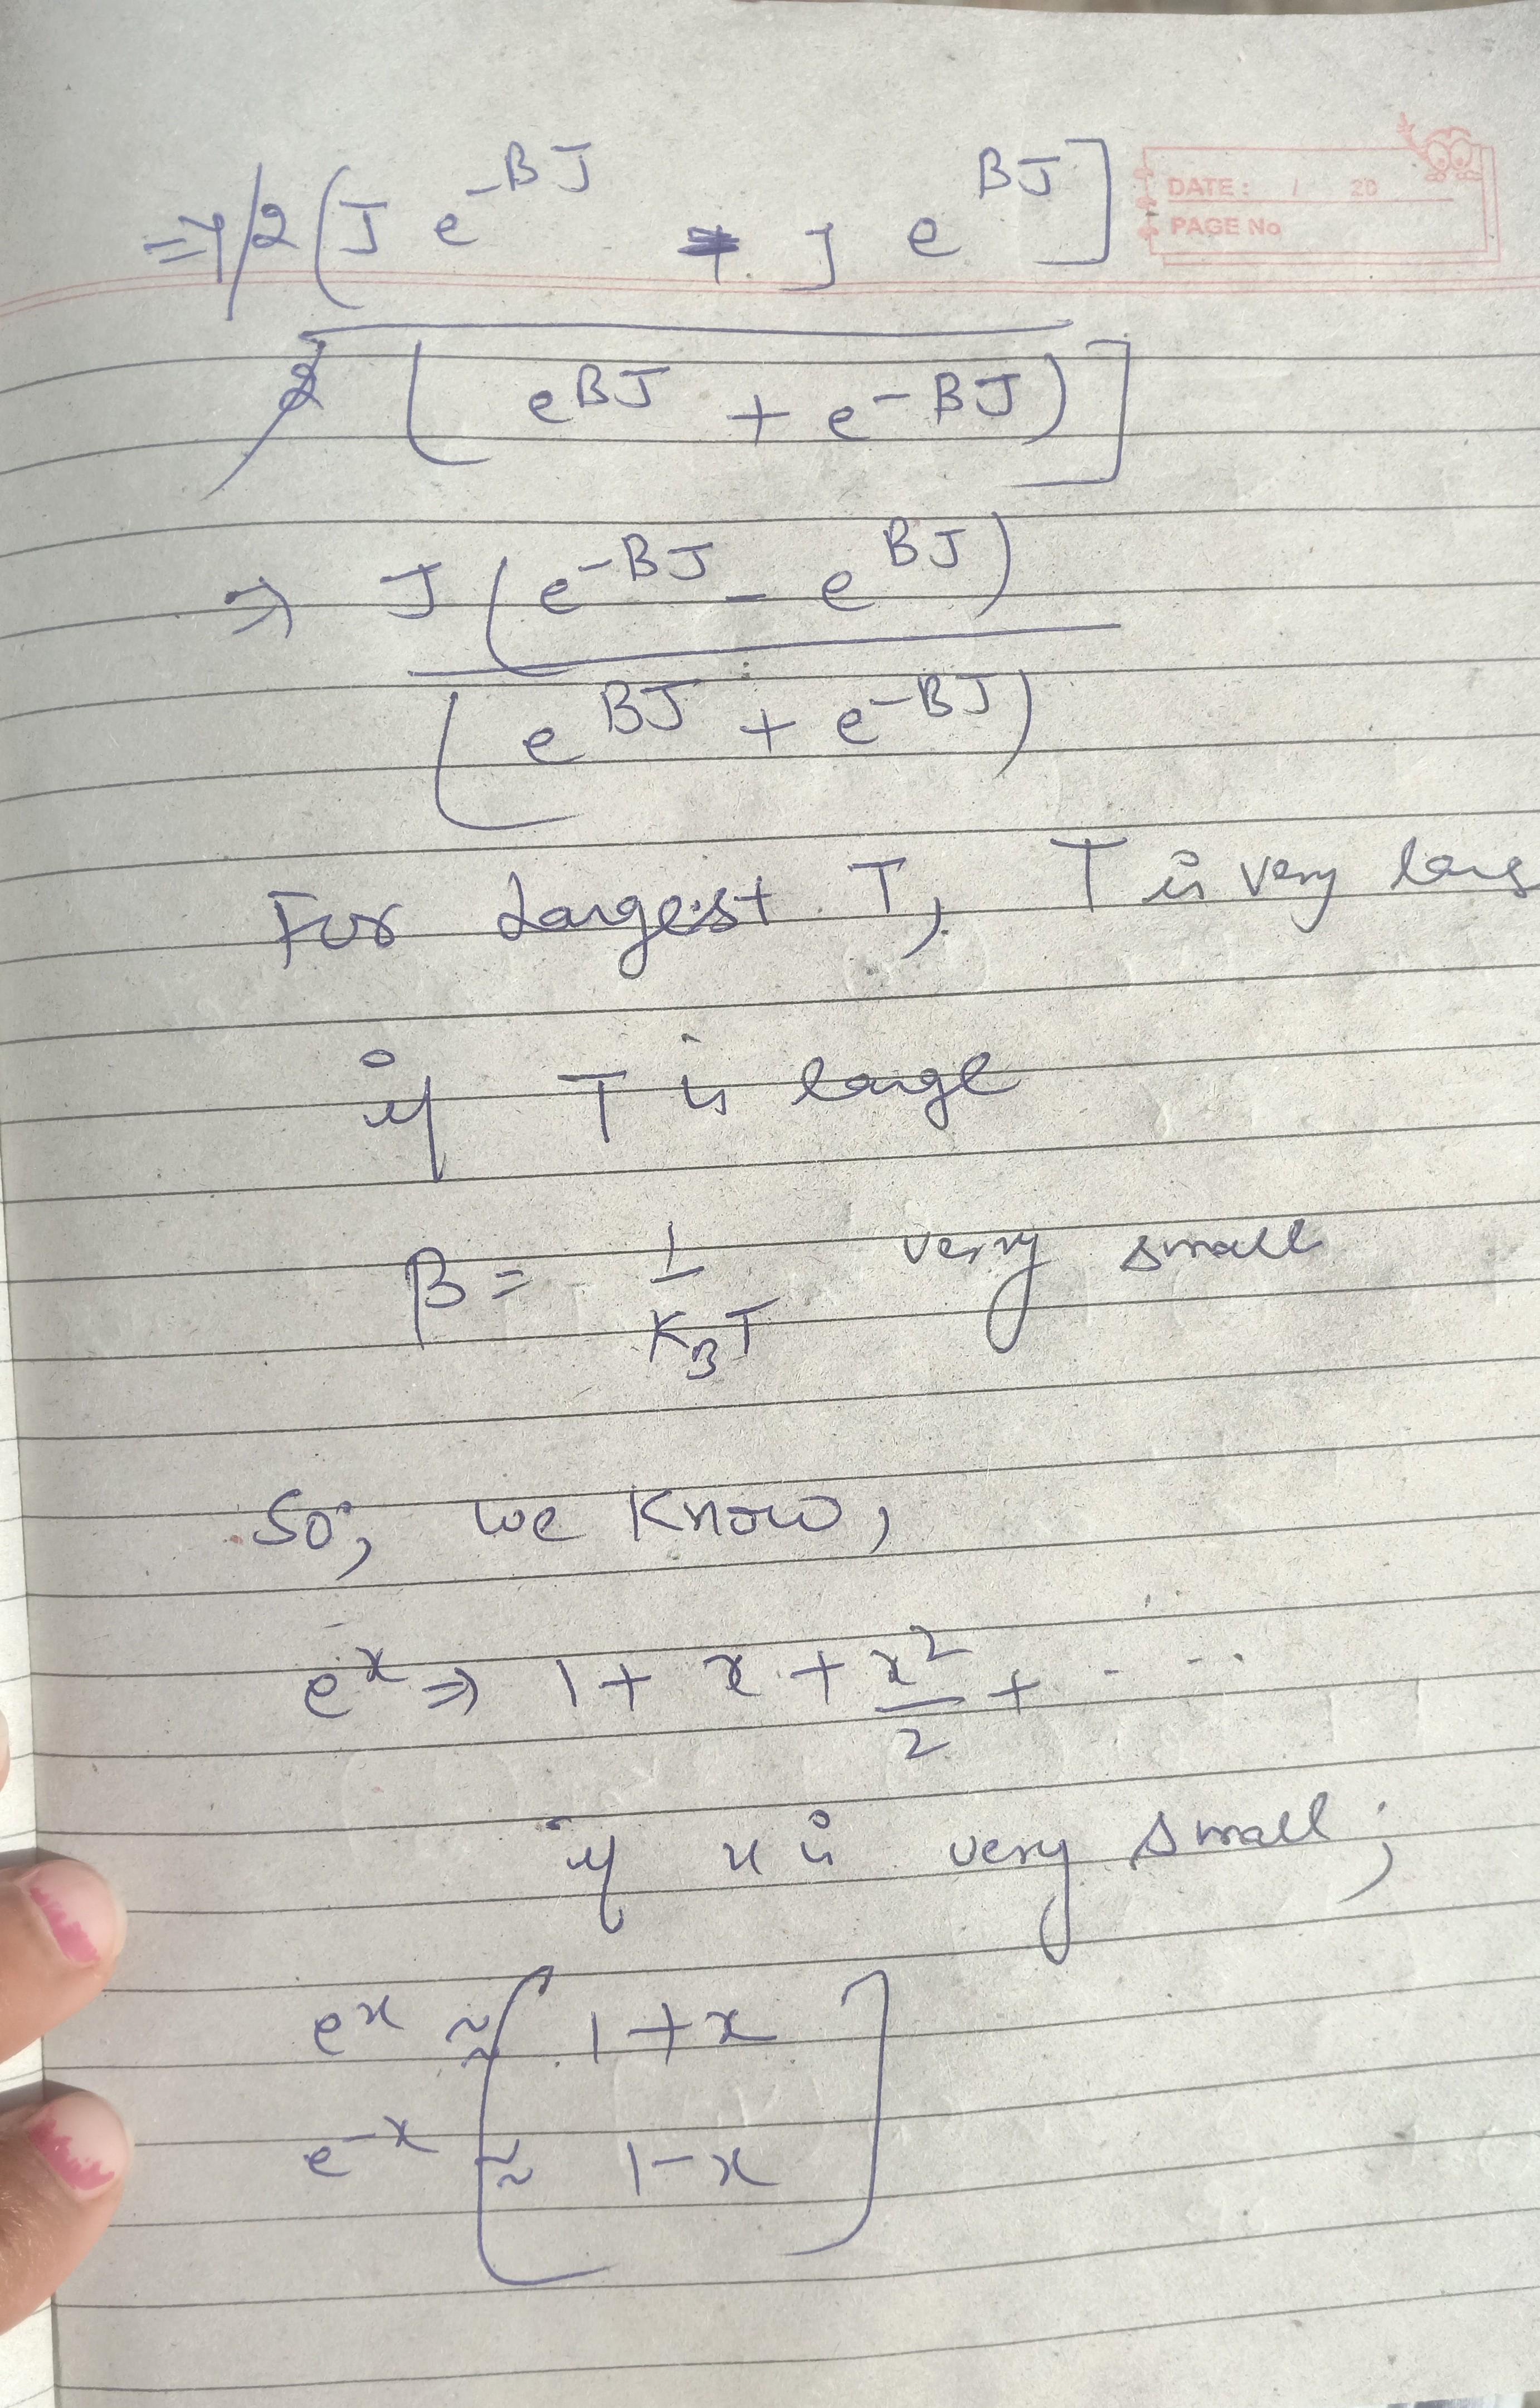 DATE : / 20
PAGE No
=> 2 ( J e^-BJ - J e^BJ ]
2 [ e^BJ + e^-BJ ) ]
=> J ( e^-BJ - e^BJ )
( e^BJ + e^-BJ )
For Largest T, T is very larg
if T is large
β = 1/K_BT very small
So, we know,
e^x => 1 + x + x^2/2 + .....
if x is very small;
e^x ≈ 1+x
e^-x ≈ 1-x